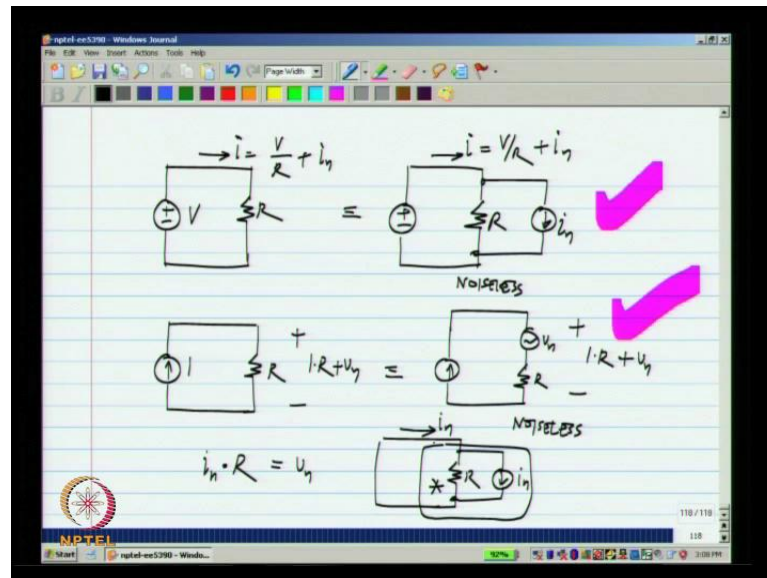 nptel-ee5390 - Windows Journal
File Edit View Insert Actions Tools Help
Page Width
B I
i = V/R + in
i = V/R + in
V R ≡ R in
NOISELESS
+ +
I R I·R+vn ≡ vn R I·R+vn
− −
NOISELESS
in
in · R = vn
* R in
118 / 118
118
NPTEL
Start nptel-ee5390 - Windo... 92% 3:08 PM